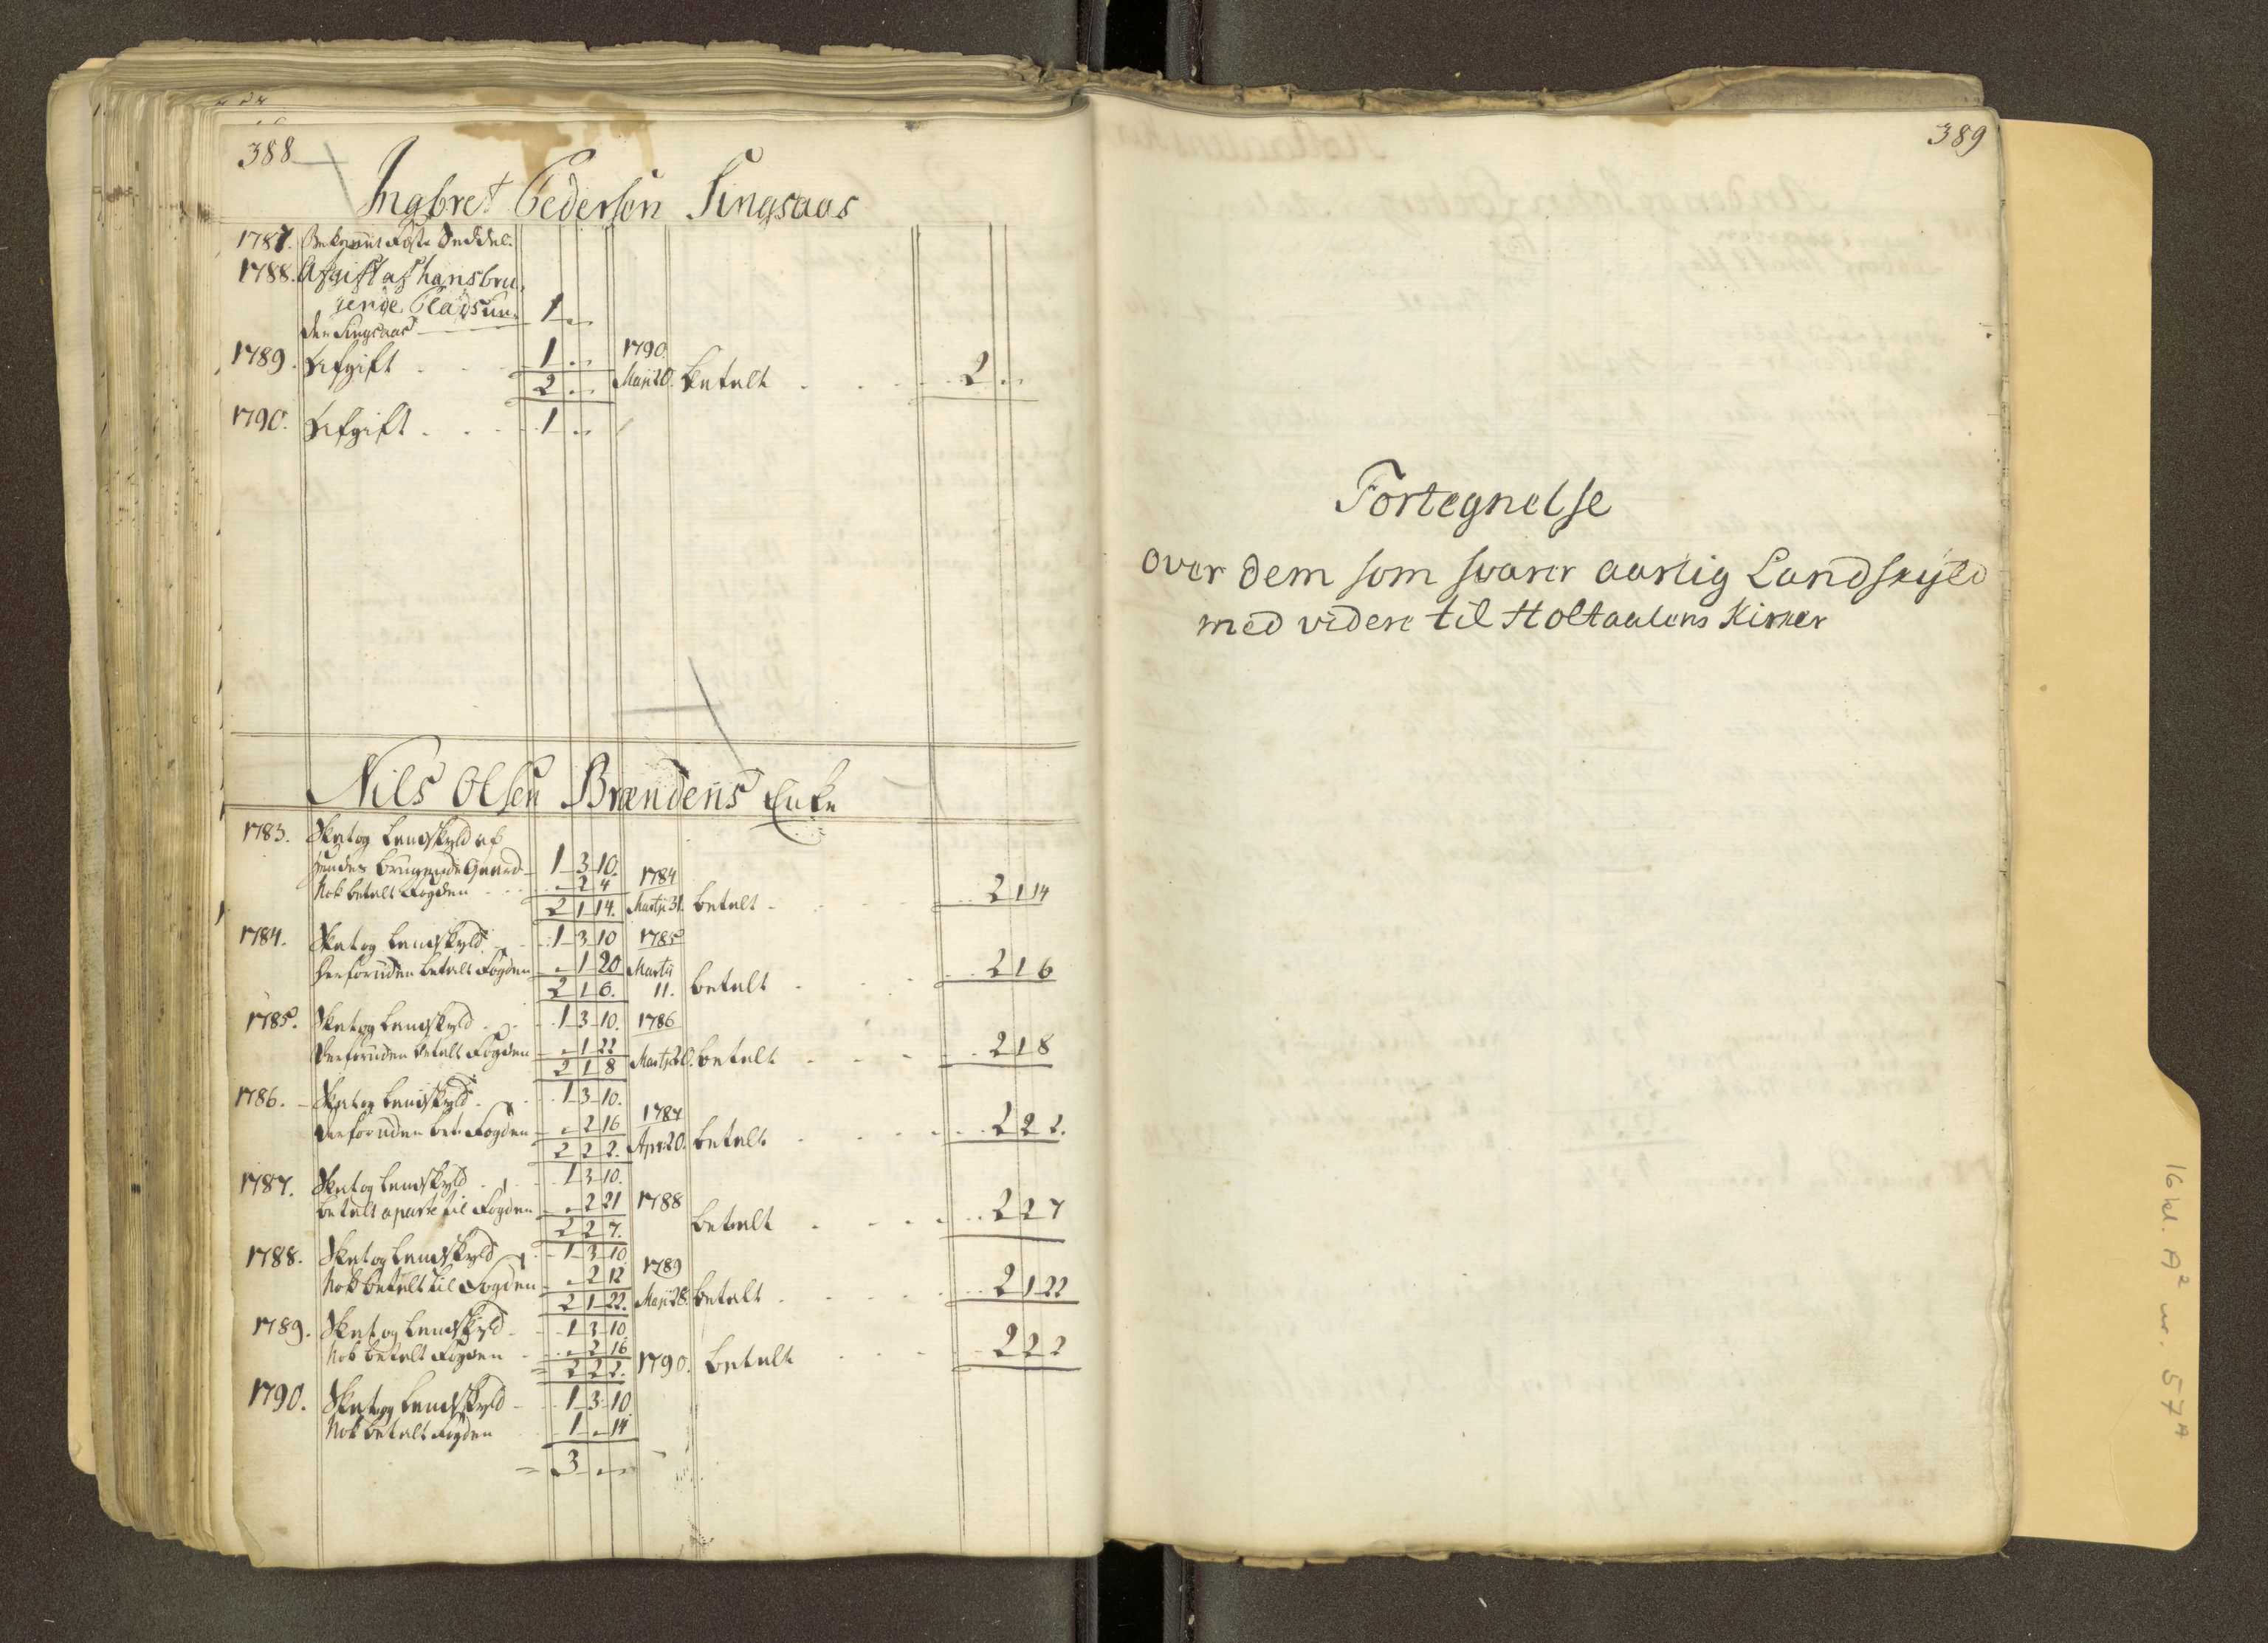 388
Ingbret Pedersen Singsaas
1787. Bekommet Fæste Seddel.
1788. Afgift af hans bru-
gende Plads un- 1 „ „
der Singsaas
1789. Afgift . . . 1 „ „ 1790
2 „ „ Maji 20. betalt . . . 2 „ „
1790. Afgift . . . 1 „ „
Nils Olsen Brændens Enke
1783. Skat og Landskyld af
hendes brugende Gaard 1 3 10.
Nok betalt Fogden „ 2 4 1784
2 1 14. Martji 31. betalt . . . 2 1 14
1784. Skat og Landskyld 1 3 10 1785
herforuden betalt Fogden „ 1 20 Martii
2 1 6. 11. betalt . . . 2 1 6
1785. Skat og Landskyld 1 3 10. 1786
Derforuden betalt Fogden „ 1 22
2 1 8 Martji 20. betalt . . . 2 1 8
1786. Skat og Landskyld 1 3 10.
Derforuden bet. Fogden „ 2 16 1787
2 2 2. Apr. 20. betalt . . . 2 2 2.
1787. Skat og Landskyld 1 3 10.
betalt aparte til Fogden „ 2 21 1788
2 2 7. betalt . . . 2 2 7
1788. Skat og Landskyld 1 3 10
Nok betalt til Fogden „ 2 12 1789
2 1 22. Maji 28. betalt . . . 2 1 22
1789. Skat og Landskyld 1 3 10
Nok betalt Fogden „ 2 16
2 2 2. 1790. betalt . . . 2 2 2
1790. Skat og Landskyld 1 3 10
Nok betalt Fogden 1 „ 14
3 „ „
389
Fortegnelse
over dem som svarer aarlig Landskyld
med videre til Holtaalens Kirker
16 kl. A² nr. 57A